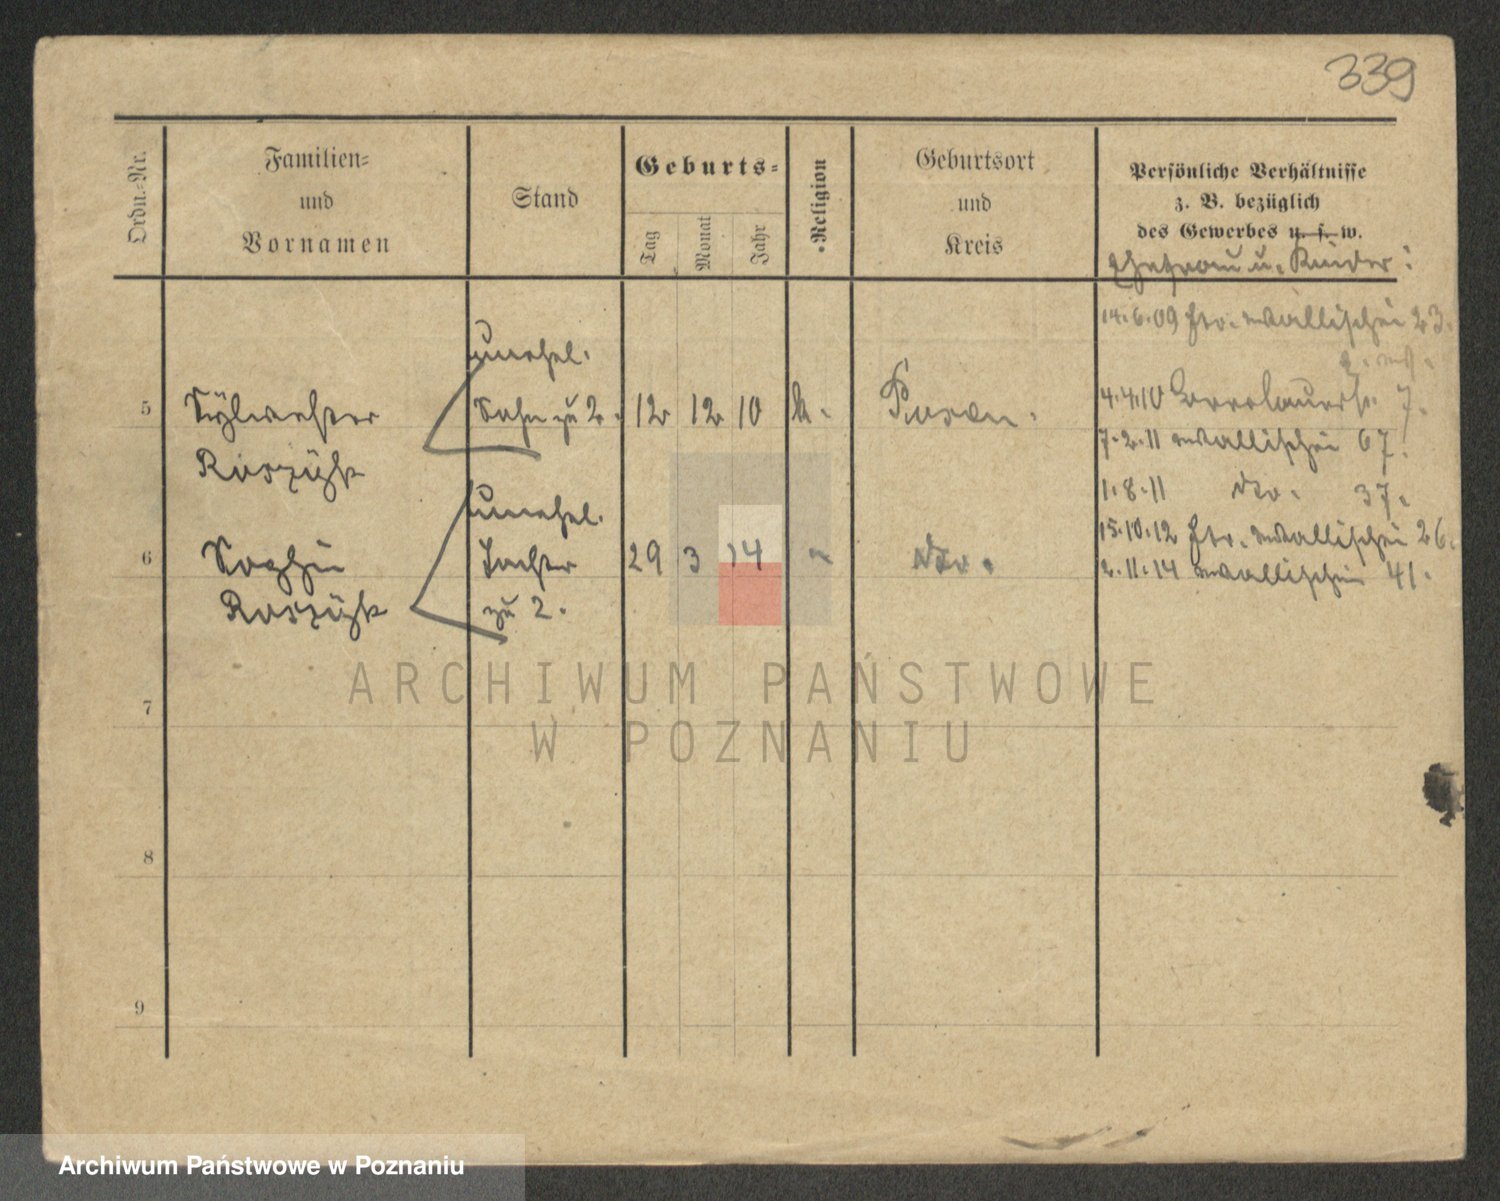 339
Ordn.-Nr.
Familien-
und
Vornamen
Stand
Geburts-
Tag
Monat
Jahr
Religion
Geburtsort
und
Kreis
Persönliche Verhältnisse
z. B. bezüglich
des Gewerbes u. s. w.
Ehefrau u. Kinder:
14.6.09 Wallischei 23.
unehel.
5 Sylwester Sohn zu 2. 12 12 10 k. Posen. 4.4.10 7.
7.2.11 Wallischei 67.
1.8.11 dto. 37.
unehel.
15.10.12 Wallischei 26.
6 Sophie Tochter 29 3 14 " dto. 2.11.14 Wallischei 41.
zu 2.
7
8
9
ARCHIWUM PAŃSTWOWE
W POZNANIU
Archiwum Państwowe w Poznaniu